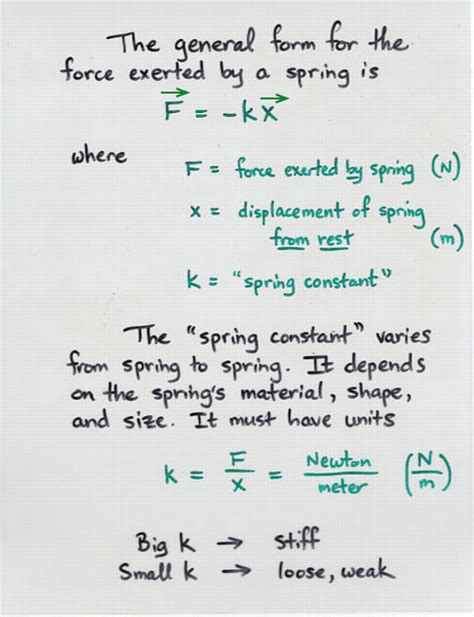 The general form for the
force exerted by a spring is
F⃗ = -kx⃗
where
F = force exerted by spring (N)
x = displacement of spring
from rest (m)
k = "spring constant"
The "spring constant" varies
from spring to spring. It depends
on the spring's material, shape,
and size. It must have units
k = F/x = Newton/meter (N/m)
Big k → stiff
Small k → loose, weak